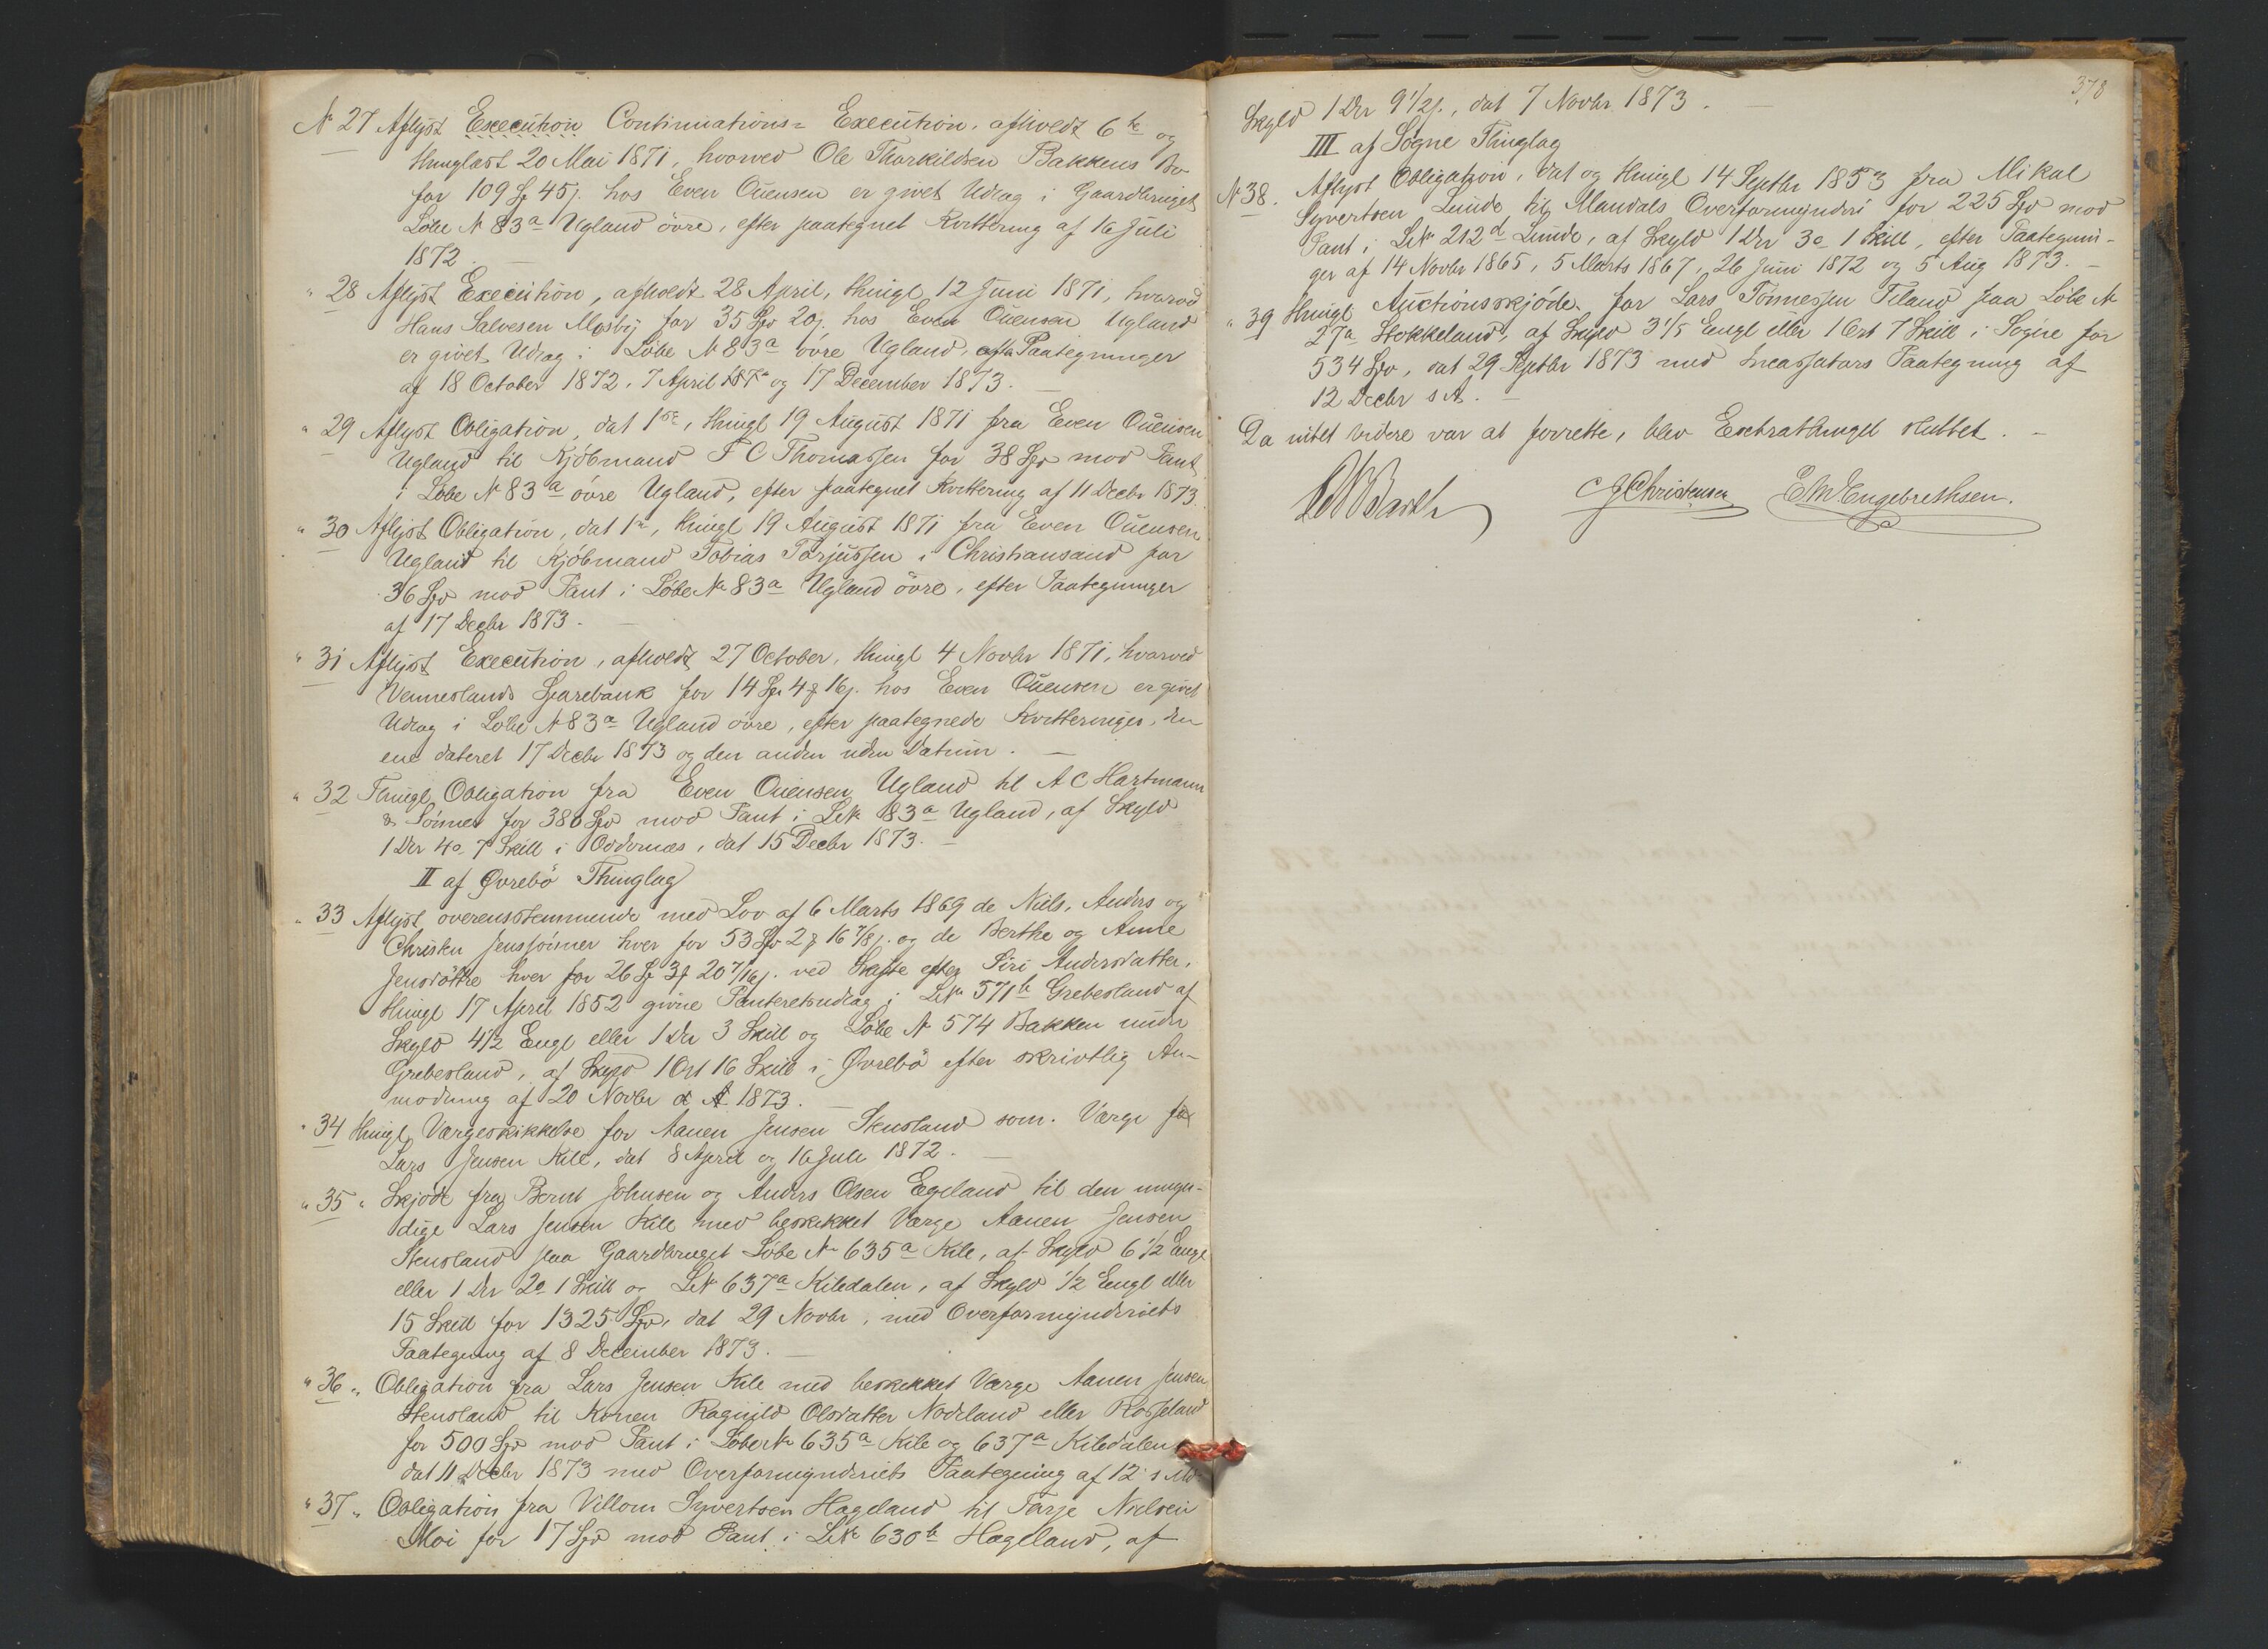 N 27 Aflyst Execution Continuations= Execution, afholdt 6te og
thinglæst 20 Mai 1871, hvorved Ole Thorkildsen Bakkens Bo
for 109 Sp 45 s. hos Even Ouensen er givet Udlæg i Gaardbruget
Løbe N 83a Ugland övre, efter paategnet Kvittering af 16 Juli
1872. —
" 28 Aflyst Execution, afholdt 28 April, thingl 12 Juni 1871, hvorved
Hans Salvesen Mosby for 35 Spd 20 s. hos Even Ouensen Ugland
er givet Udlæg i Løbe N 83a övre Ugland, efter Paategninger
af 18 October 1872, 7 April og 17 December 1873. —
" 29 Aflyst Obligation, dat 1ste, thingl 19 August 1871 fra Even Ouensen
Ugland til Kjöbmand F C Thomassen for 38 Spd mod Pant
i Løbe N 83a övre Ugland, efter paategnet Kvittering af 11 Decbr 1873.
" 30 Aflyst Obligation, dat 1ste, thingl 19 August 1871 fra Even Ouensen
Ugland til Kjöbmand Tobias Torjussen i Christiansand for
36 Spd mod Pant i Løbe No 83a Ugland övre, efter Paategninger
af 17 Decbr 1873. —
" 31 Aflyst Execution, afholdt 27 October, thingl 4 Novbr 1871, hvorved
Venneslands Sparebank for 14 Sp 4 16 s. hos Even Ouensen er givet
Udlæg i Løbe N 83a Ugland övre, efter paategnede Kvitteringer, den
ene dateret 17 Decbr 1873 og den anden uden Datum. —
" 32 Thingl Obligation fra Even Ouensen Ugland til A C Hartmann
& Sönner for 380 Spd mod Pant i LN 83a Ugland, af Skyld
1 Dlr 4o 7 Skill i Oddernæs, dat 15 Decbr 1873. —
II af Øvrebö Thinglag
" 33 Aflyst overensstemmende med Lov af 6 Marts 1869 de Niels, Anders og
Christen Jenssönner hver for 53 Spd 2 16 7/8 s. og de Berthe og Anne
Jensdöttre hver for 26 Sp 3 20 7/16 s. ved Skifte efter Siri Andersdatter,
thingl 17 April 1852 givne Panteretsudlæg i LNo 571b Grebesland af
Skyld 4 1/2 Engl eller 1 Dlr 3 Skill og Løbe N 574 Bakken under
Grebesland, af Skyld 1 Ort 16 Skill i Øvrebö efter skriftlig An-
modning af 20 Novbr 1873. —
" 34 thingl Værgeskikkelse for Aanen Jensen Stensland som Værge for
Lars Jensen Kile, dat 8 April og 16 Juli 1872. —
" 35 " Skjöde fra Bernt Johnsen og Anders Olsen Egeland til den umyn-
dige Lars Jensen Kile med beskikket Værge Aanen Jensen
Stensland paa Gaardbruget Løbe No 635a Kile, af Skyld 6 1/2 Engl
eller 1 Dlr 2o 1 Skill og LN 637a Kiledalen, af Skyld 1/2 Engl eller
15 Skill for 1325 Spd, dat 29 Novbr, med Overformynderiets
Paategning af 8 December 1873. —
" 36 " Obligation fra Lars Jensen Kile med beskikket Værge Aanen Jensen
Stensland til Konen Ragnild Olsdatter Nodeland eller Rosseland
for 500 Spd mod Pant i Løbe No 635a Kile og 637a Kiledalen
dat 11 Decbr 1873 med Overformynderiets Paategning af 12 s Md.
" 37 " Obligation fra Villom Syvertsen Hageland til Tarje Nielsen
Moi for 17 Spd mod Pant i LNo 630b Hageland, af
378
Skyld 1 Dlr 9 1/2 s., dat 7 Novbr 1873. —
III af Søgne Thinglag
N 38. Aflyst Obligation, dat og thingl 14 Septbr 1853 fra Mikal
Syvertsen Lunde til Mandals Overformynderi for 225 Spd mod
Pant i LNo 212d Lunde, af Skyld 1 Dlr 3o 1 Skill, efter Paategnin-
ger af 14 Novbr 1865, 5 Marts 1867, 26 Juni 1872 og 5 Aug 1873. —
" 39 thingl Auctionsskjöde for Lars Tönnessen Teland paa Löbe N
27a Stokkeland, af Skyld 3 1/5 Engl eller 1 Ort 7 Skill i Sogne for
534 Spd, dat 29 Septbr 1873 med Incassators Paategning af
12 Decbr s A. —
Da intet videre var at forrette, blev Extrathinget sluttet. —
CJChristensen EMEngebrethsen.